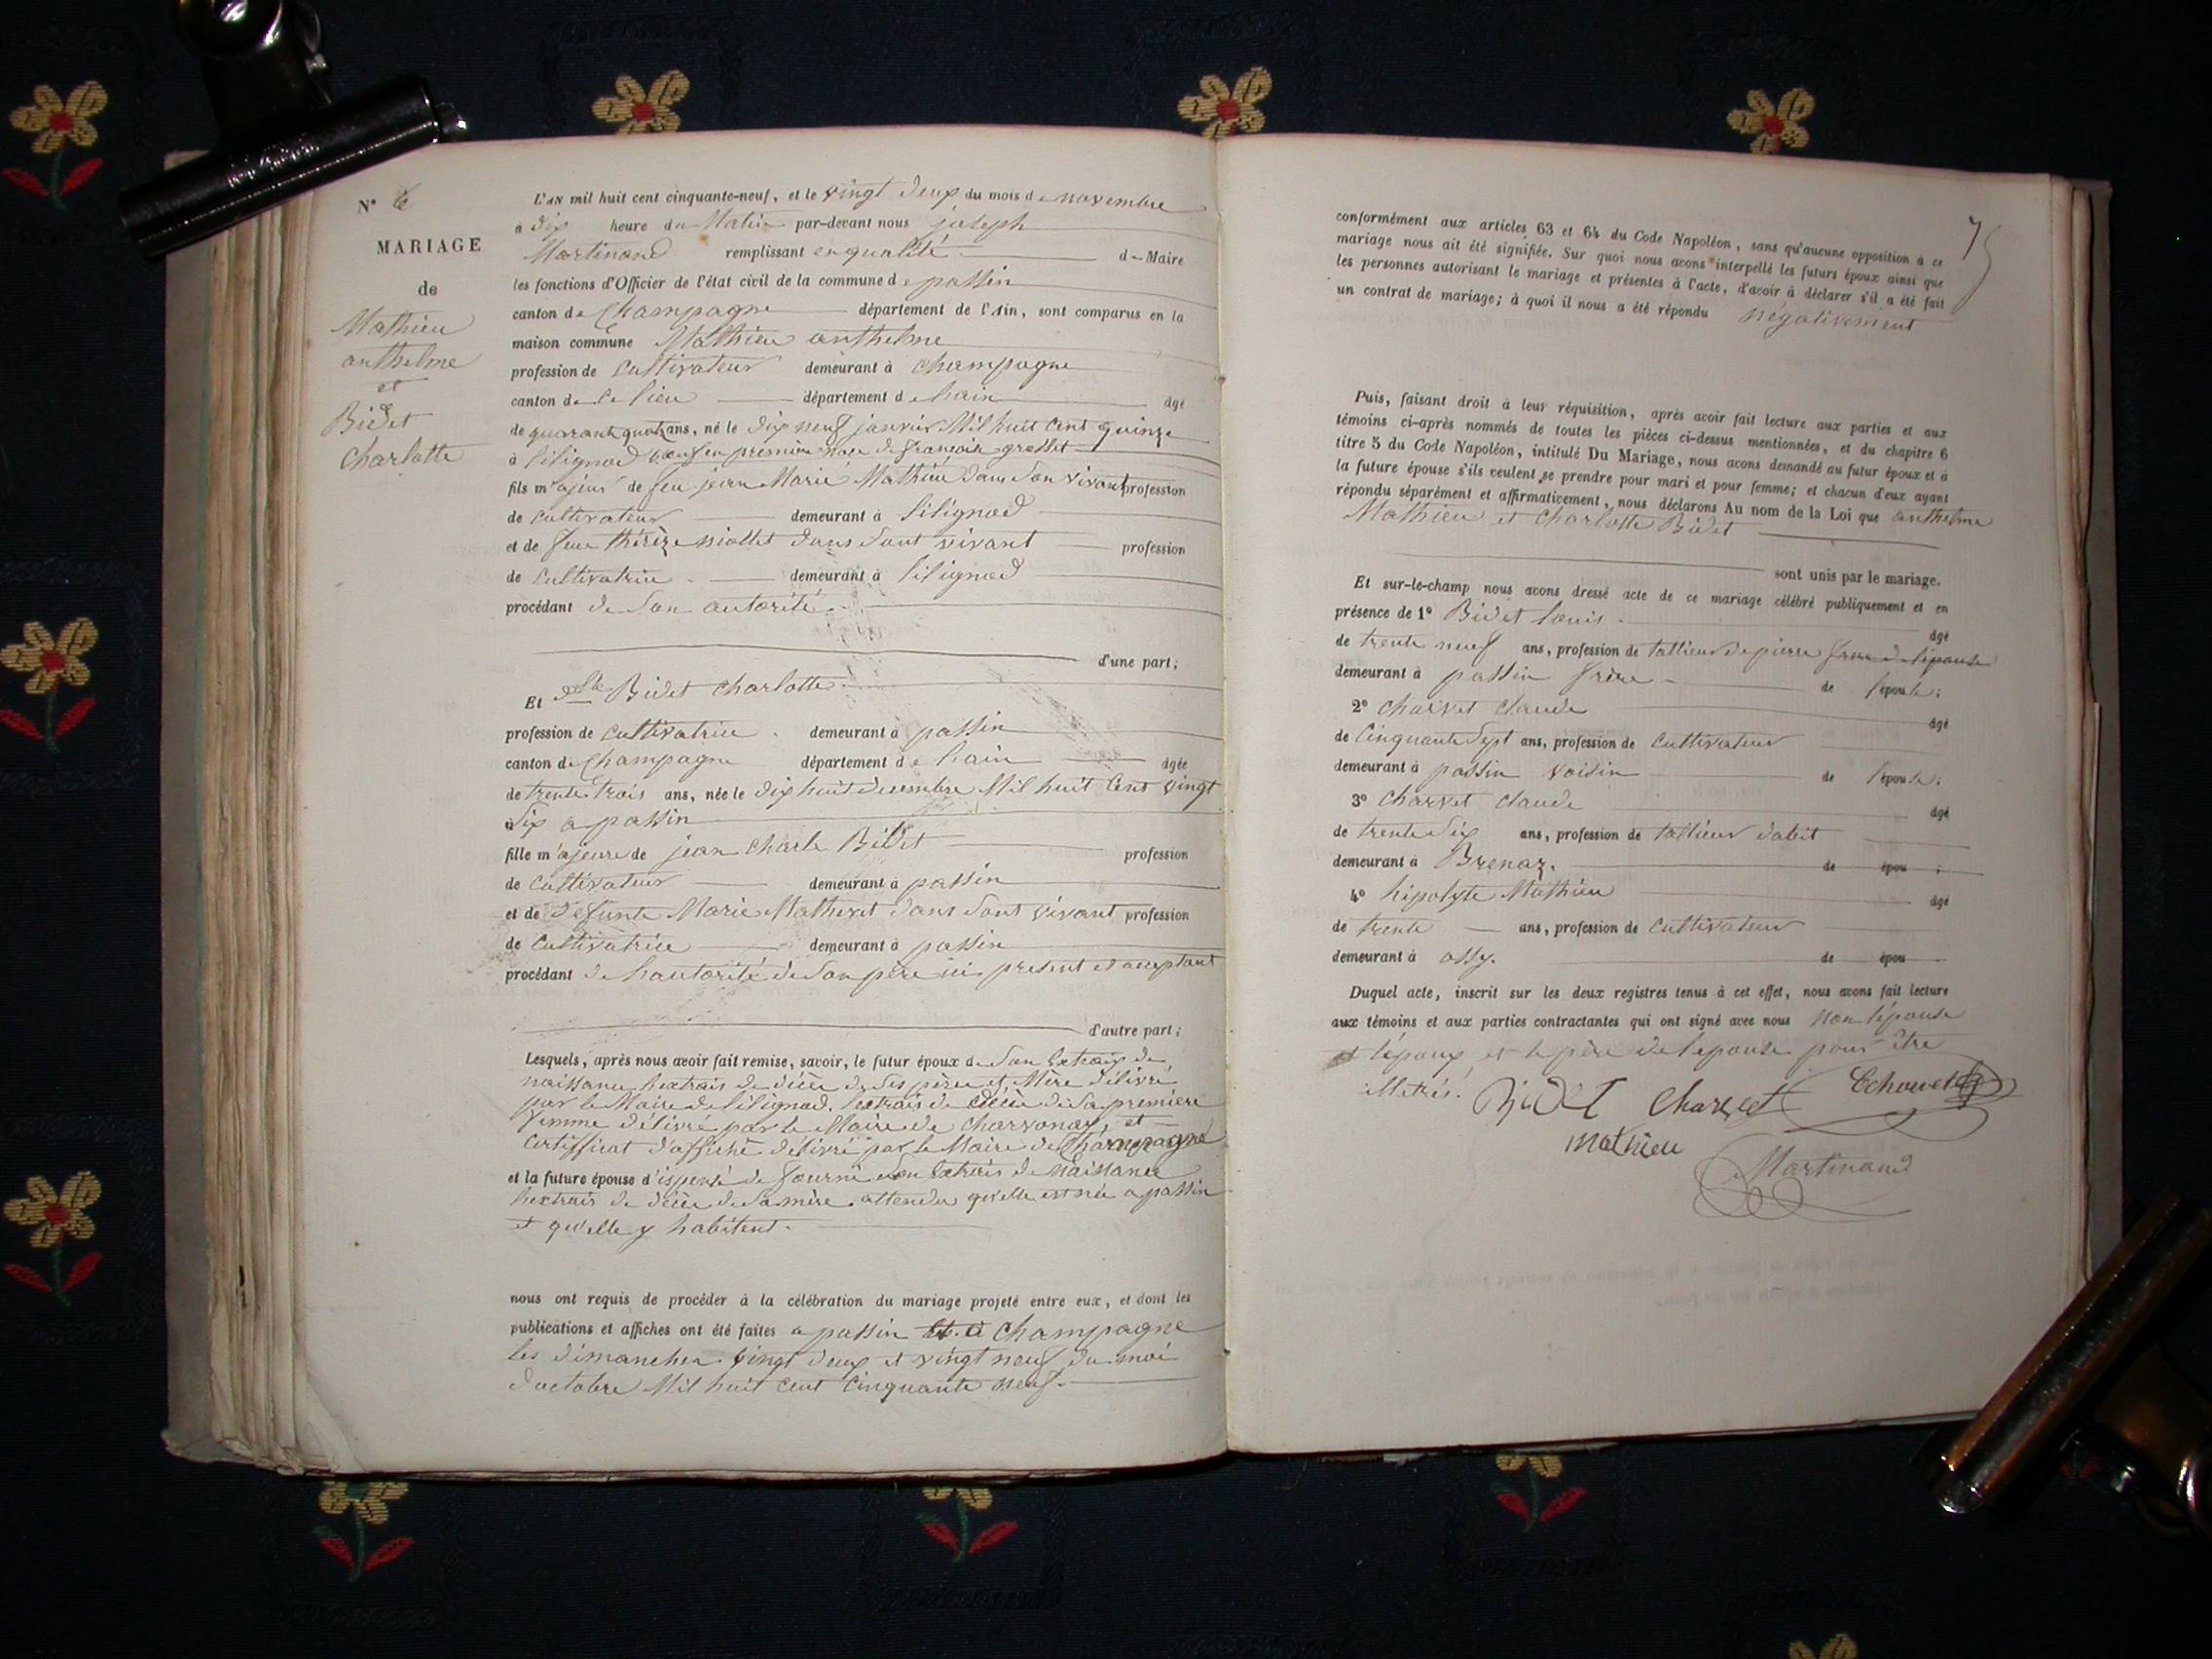 N° 6
MARIAGE
de
Mathieu
anthelme
et
Bidet
Charlotte
L'AN mil huit cent cinquante-neuf, et le vingt deux du mois de novembre
à dix heure du Matin par-devant nous joseph
Martinand remplissant en qualité de Maire
les fonctions d'Officier de l'état civil de la commune de passin
canton de Champagne département de l'Ain, sont comparus en la
maison commune Mathieu anthelme
profession de cultivateur demeurant à Champagne
canton de Ce lieu département de lain âgé
de quarant quatr ans, né le dix neuf janvier Mil huit Cent quinze
à lilignod veuf en premiere noce de françoise grosset
fils majeur de feu jean Marie Mathieu dans son vivant profession
de cultivateur demeurant à lilignod
et de feue thérèze niollet dans sont vivant profession
de Cultivatrice demeurant à lilignod
procédant de son autorité
d'une part;
Et dlle Bidet Charlotte
profession de cultivatrice demeurant à passin
canton de Champagne département de lain âgée
de trente trois ans, née le dix huit decembre Mil huit Cent vingt
six a passin
fille majeure de jean Charle Bidet profession
de cultivateur demeurant à passin
et de defunte Marie Matheret dans sont vivant profession
de Cultivatrice demeurant à passin
procédant de lautorité de son père ici present et acceptant
d'autre part;
Lesquels, après nous avoir fait remise, savoir, le futur époux de Son Extrais de
naissance, lextrais de décès de ses père et Mère délivré
par le Maire de lilignod. lextrais de décès de sa première
femme délivré par le Maire de Charvonay, et
Certifficat d'affiche délivré par le Maire de Champagne
et la future épouse d'ispensé de fournir son Extrais de Naissance
lextrais de décès de sa mère attendu qu'elle est née a passin
et qu'elle y habitent.
nous ont requis de procéder à la célébration du mariage projeté entre eux, et dont les
publications et affiches ont été faites a passin et à Champagne
les dimanches vingt deux et vingt neuf du moi
doctobre Mil huit cent Cinquante neuf.
75
conformément aux articles 63 et 64 du Code Napoléon, sans qu'aucune opposition à ce
mariage nous ait été signifiée. Sur quoi nous avons interpellé les futurs époux ainsi que
les personnes autorisant le mariage et présentes à l'acte, d'avoir à déclarer s'il a été fait
un contrat de mariage; à quoi il nous a été répondu negativement
Puis, faisant droit à leur réquisition, après avoir fait lecture aux parties et aux
témoins ci-après nommés de toutes les pièces ci-dessus mentionnées, et du chapitre 6
titre 5 du Code Napoléon, intitulé Du Mariage, nous avons demandé au futur époux et à
la future épouse s'ils veulent se prendre pour mari et pour femme; et chacun d'eux ayant
répondu séparément et affirmativement, nous déclarons Au nom de la Loi que anthelme
Mathieu et Charlotte Bidet
sont unis par le mariage.
Et sur-le-champ nous avons dressé acte de ce mariage célébré publiquement et en
présence de 1° Bidet louis âgé
de trente neuf ans, profession de tallieur de pierre frere de lépouse
demeurant à passin frère de l'épouse;
2° Charvet Claude âgé
de Cinquante Sept ans, profession de Cultivateur
demeurant à passin voisin de l'épouse;
3° Charvet claude âgé
de trente Six ans, profession de tallieur dabit
demeurant à Brenaz. de épou ;
4° hipolyte Mathieu âgé
de trente ans, profession de Cultivateur
demeurant à ossy. de épou
Duquel acte, inscrit sur les deux registres tenus à cet effet, nous avons fait lecture
aux témoins et aux parties contractantes qui ont signé avec nous non lépouse
et lépoux et le père de lepouse pour être
illetrés.
Bidet Charvet Charvet
mathieu
Martinand